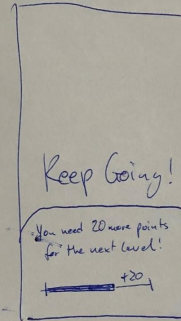 Keep Going!
You need 20 more points
for the next level!
+20